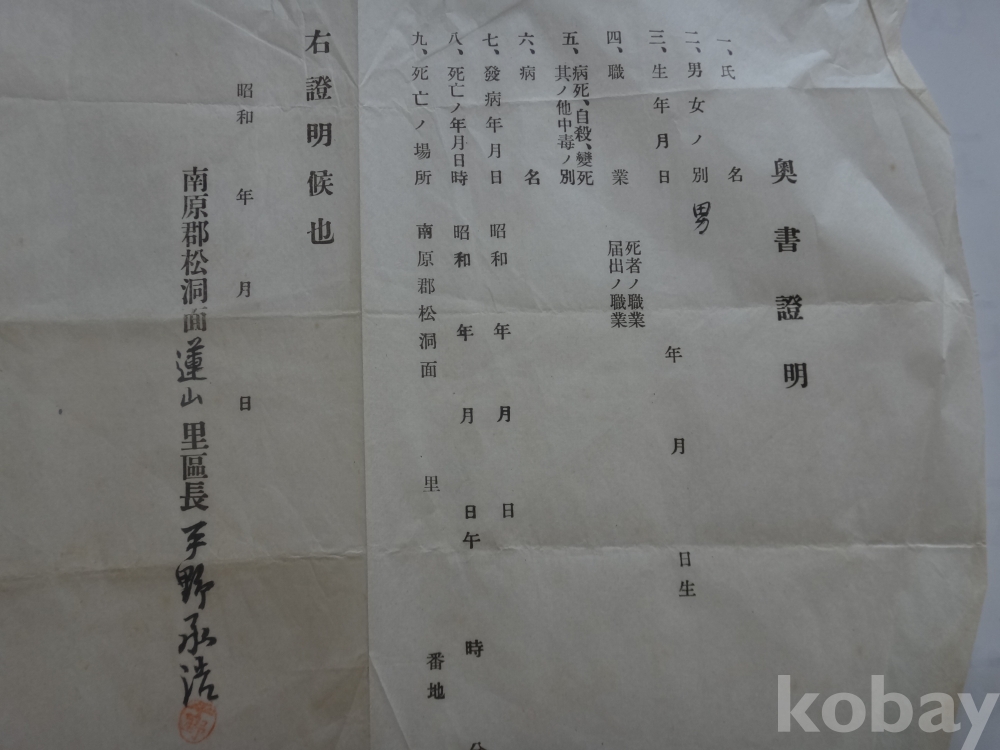 奥書證明
一、氏名
二、男女ノ別 男
三、生年月日 年 月 日生
四、職業 死者ノ職業
届出ノ職業
五、病死、自殺、變死
其ノ他中毒ノ別
六、病名
七、發病年月日 昭和 年 月 日
八、死亡ノ年月日時 昭和 年 月 日午 時 分
九、死亡ノ場所 南原郡松洞面 里 番地
右證明候也
昭和 年 月 日
南原郡松洞面蓮山里區長 平野承浩
kobay